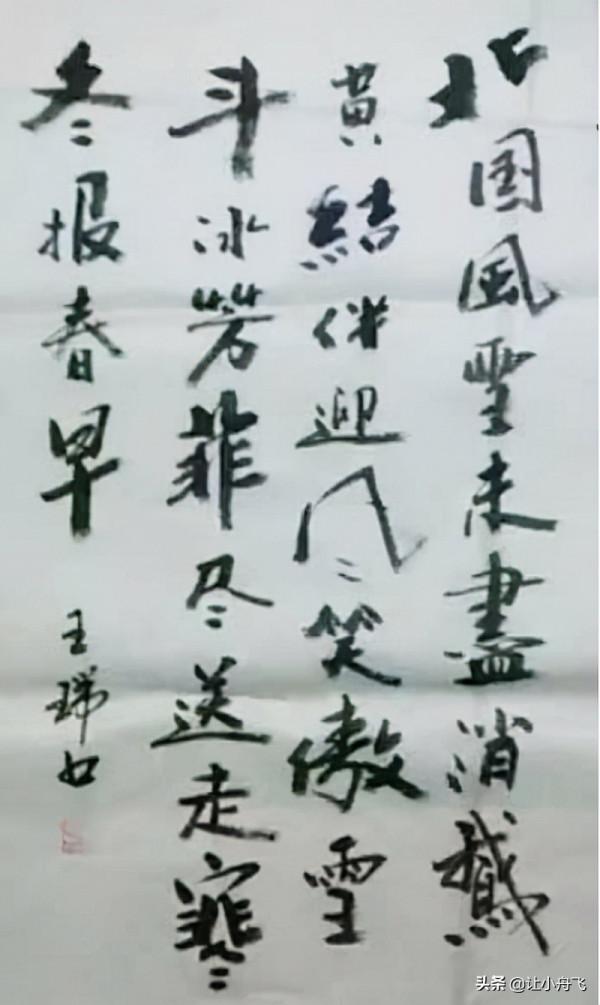 北国風雪未盡消鵞
黄結伴迎风笑傲雪
斗冰芳菲尽送走寒
冬报春早
王瑞如
头条 @让小舟飞